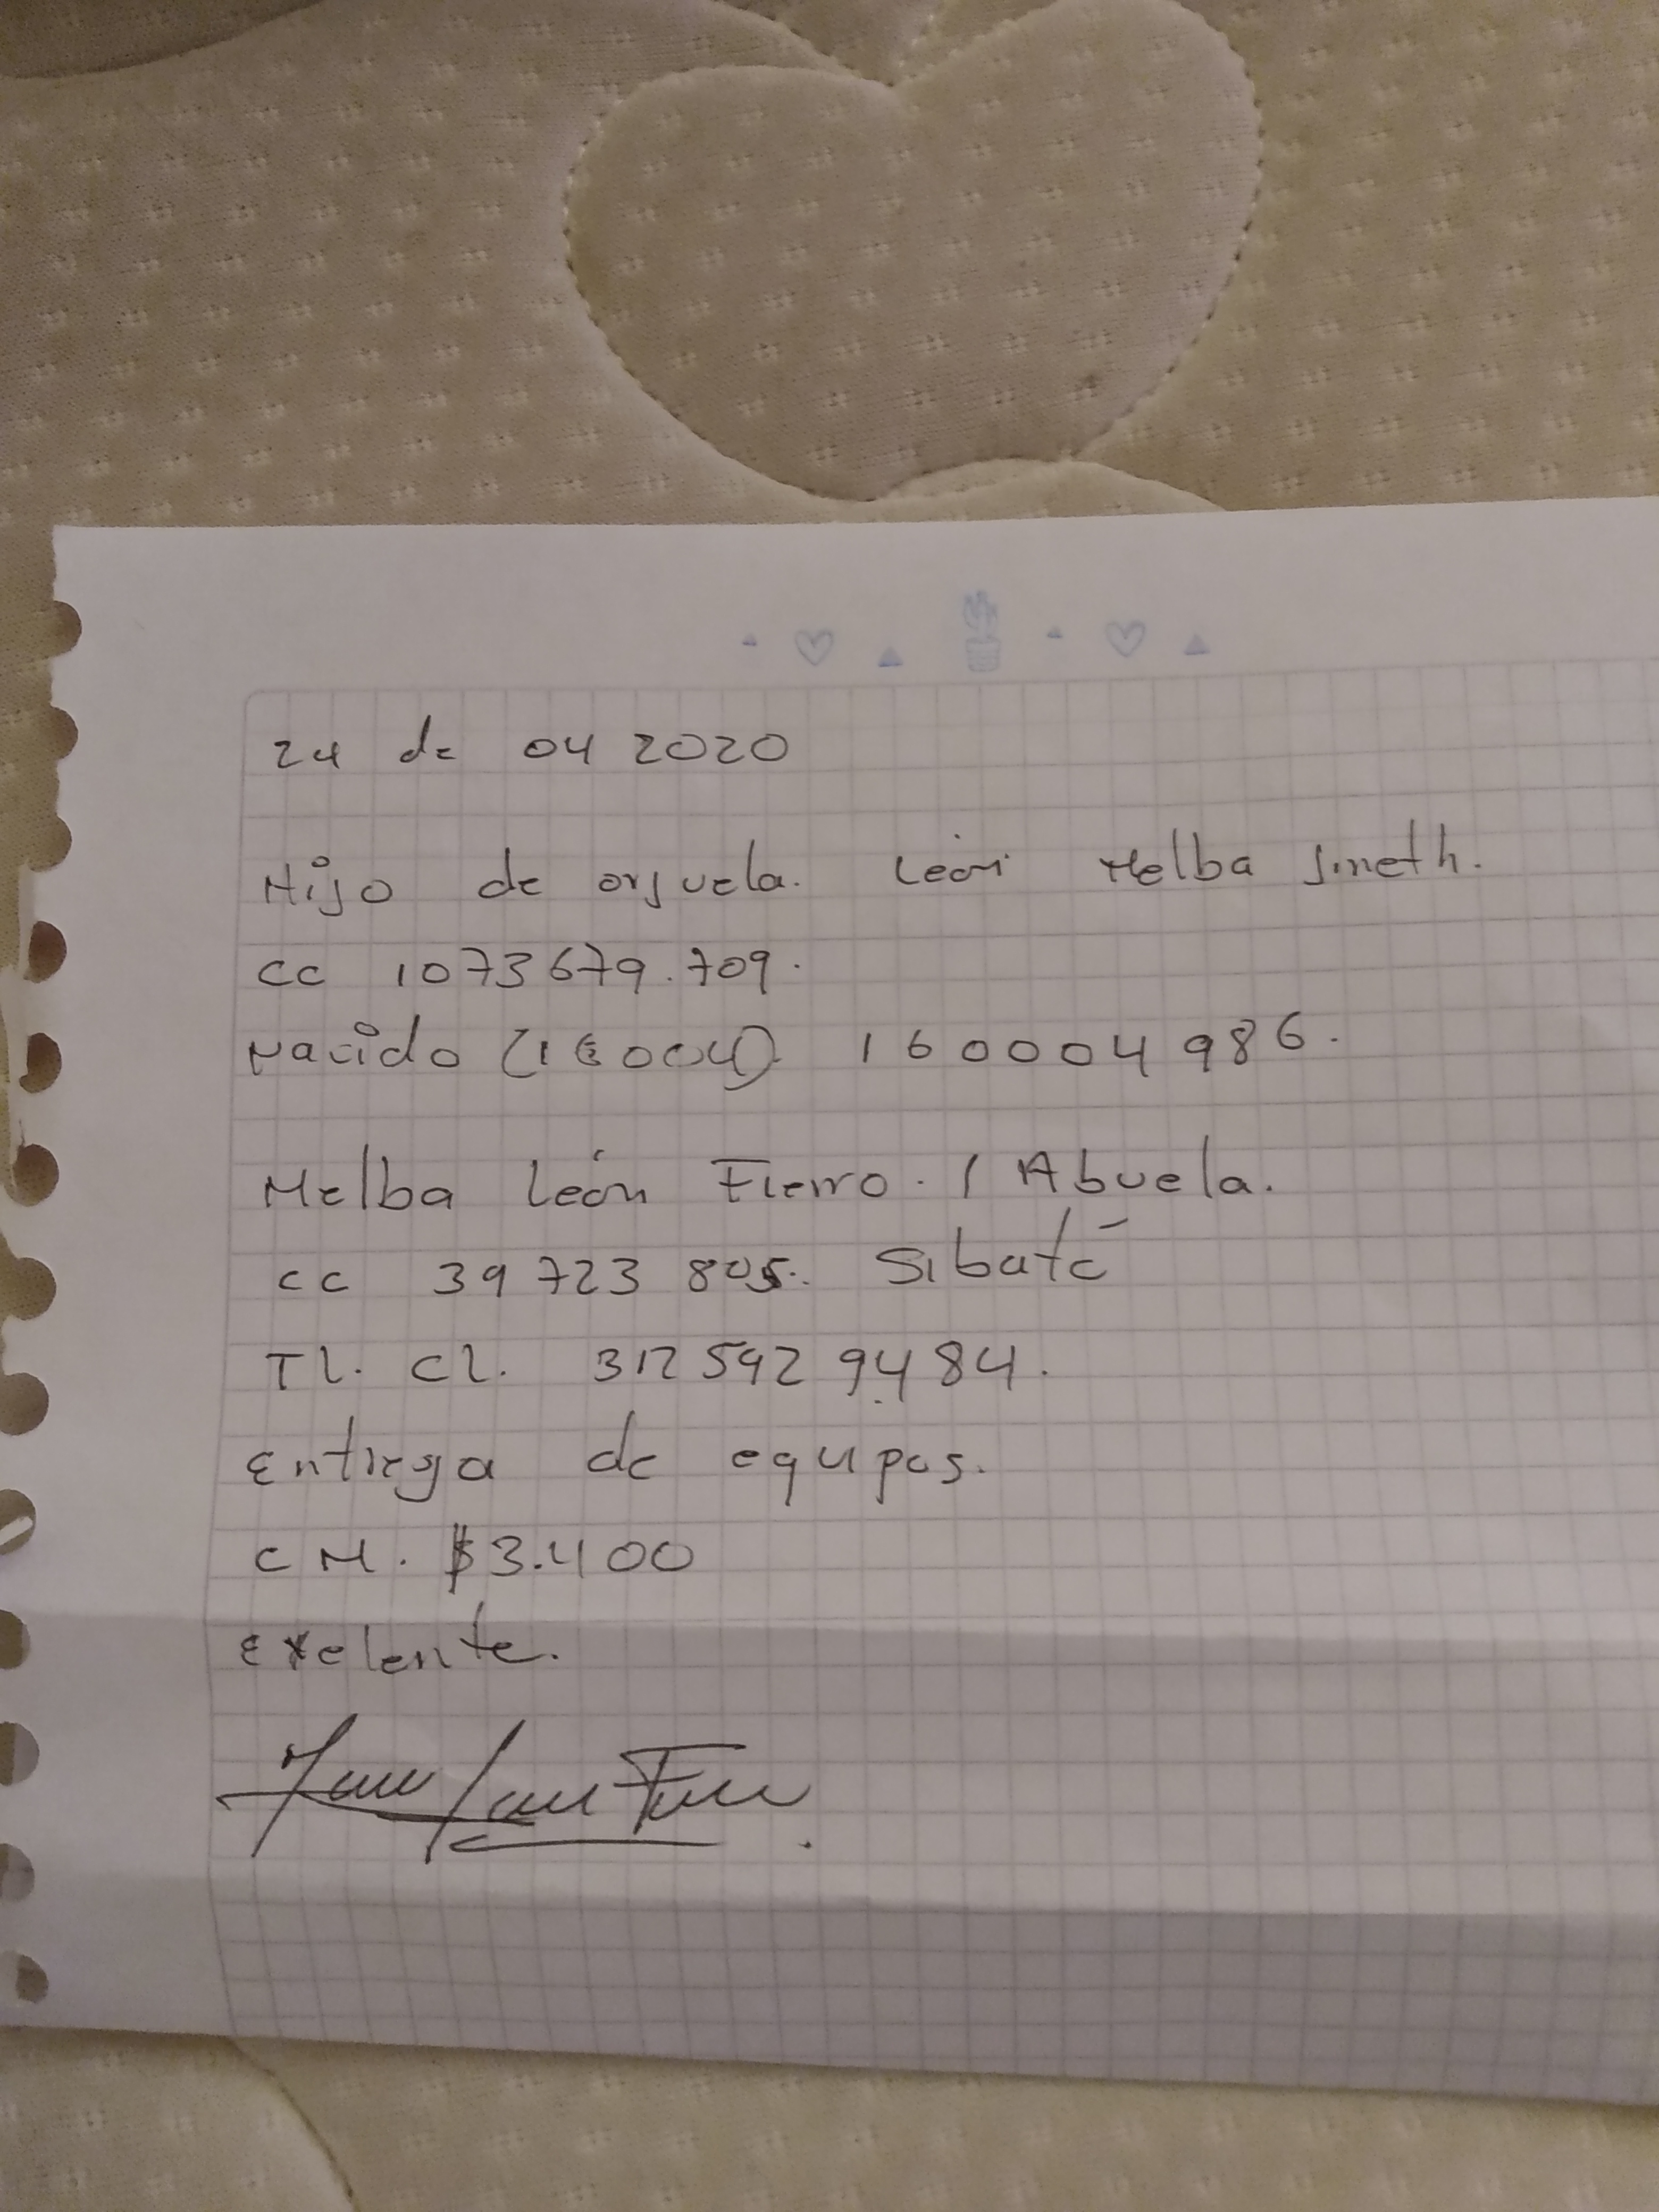 24 de 04 2020
Hijo de orjuela. León Melba Jineth.
CC 1073679.709.
Nacido (16004) 160004986.
Melba León Fierro. / Abuela.
CC 39723805. Sibaté
Tl. Cl. 312 592 9484.
Entrega de equipos.
CM. $3.400
Exelente.